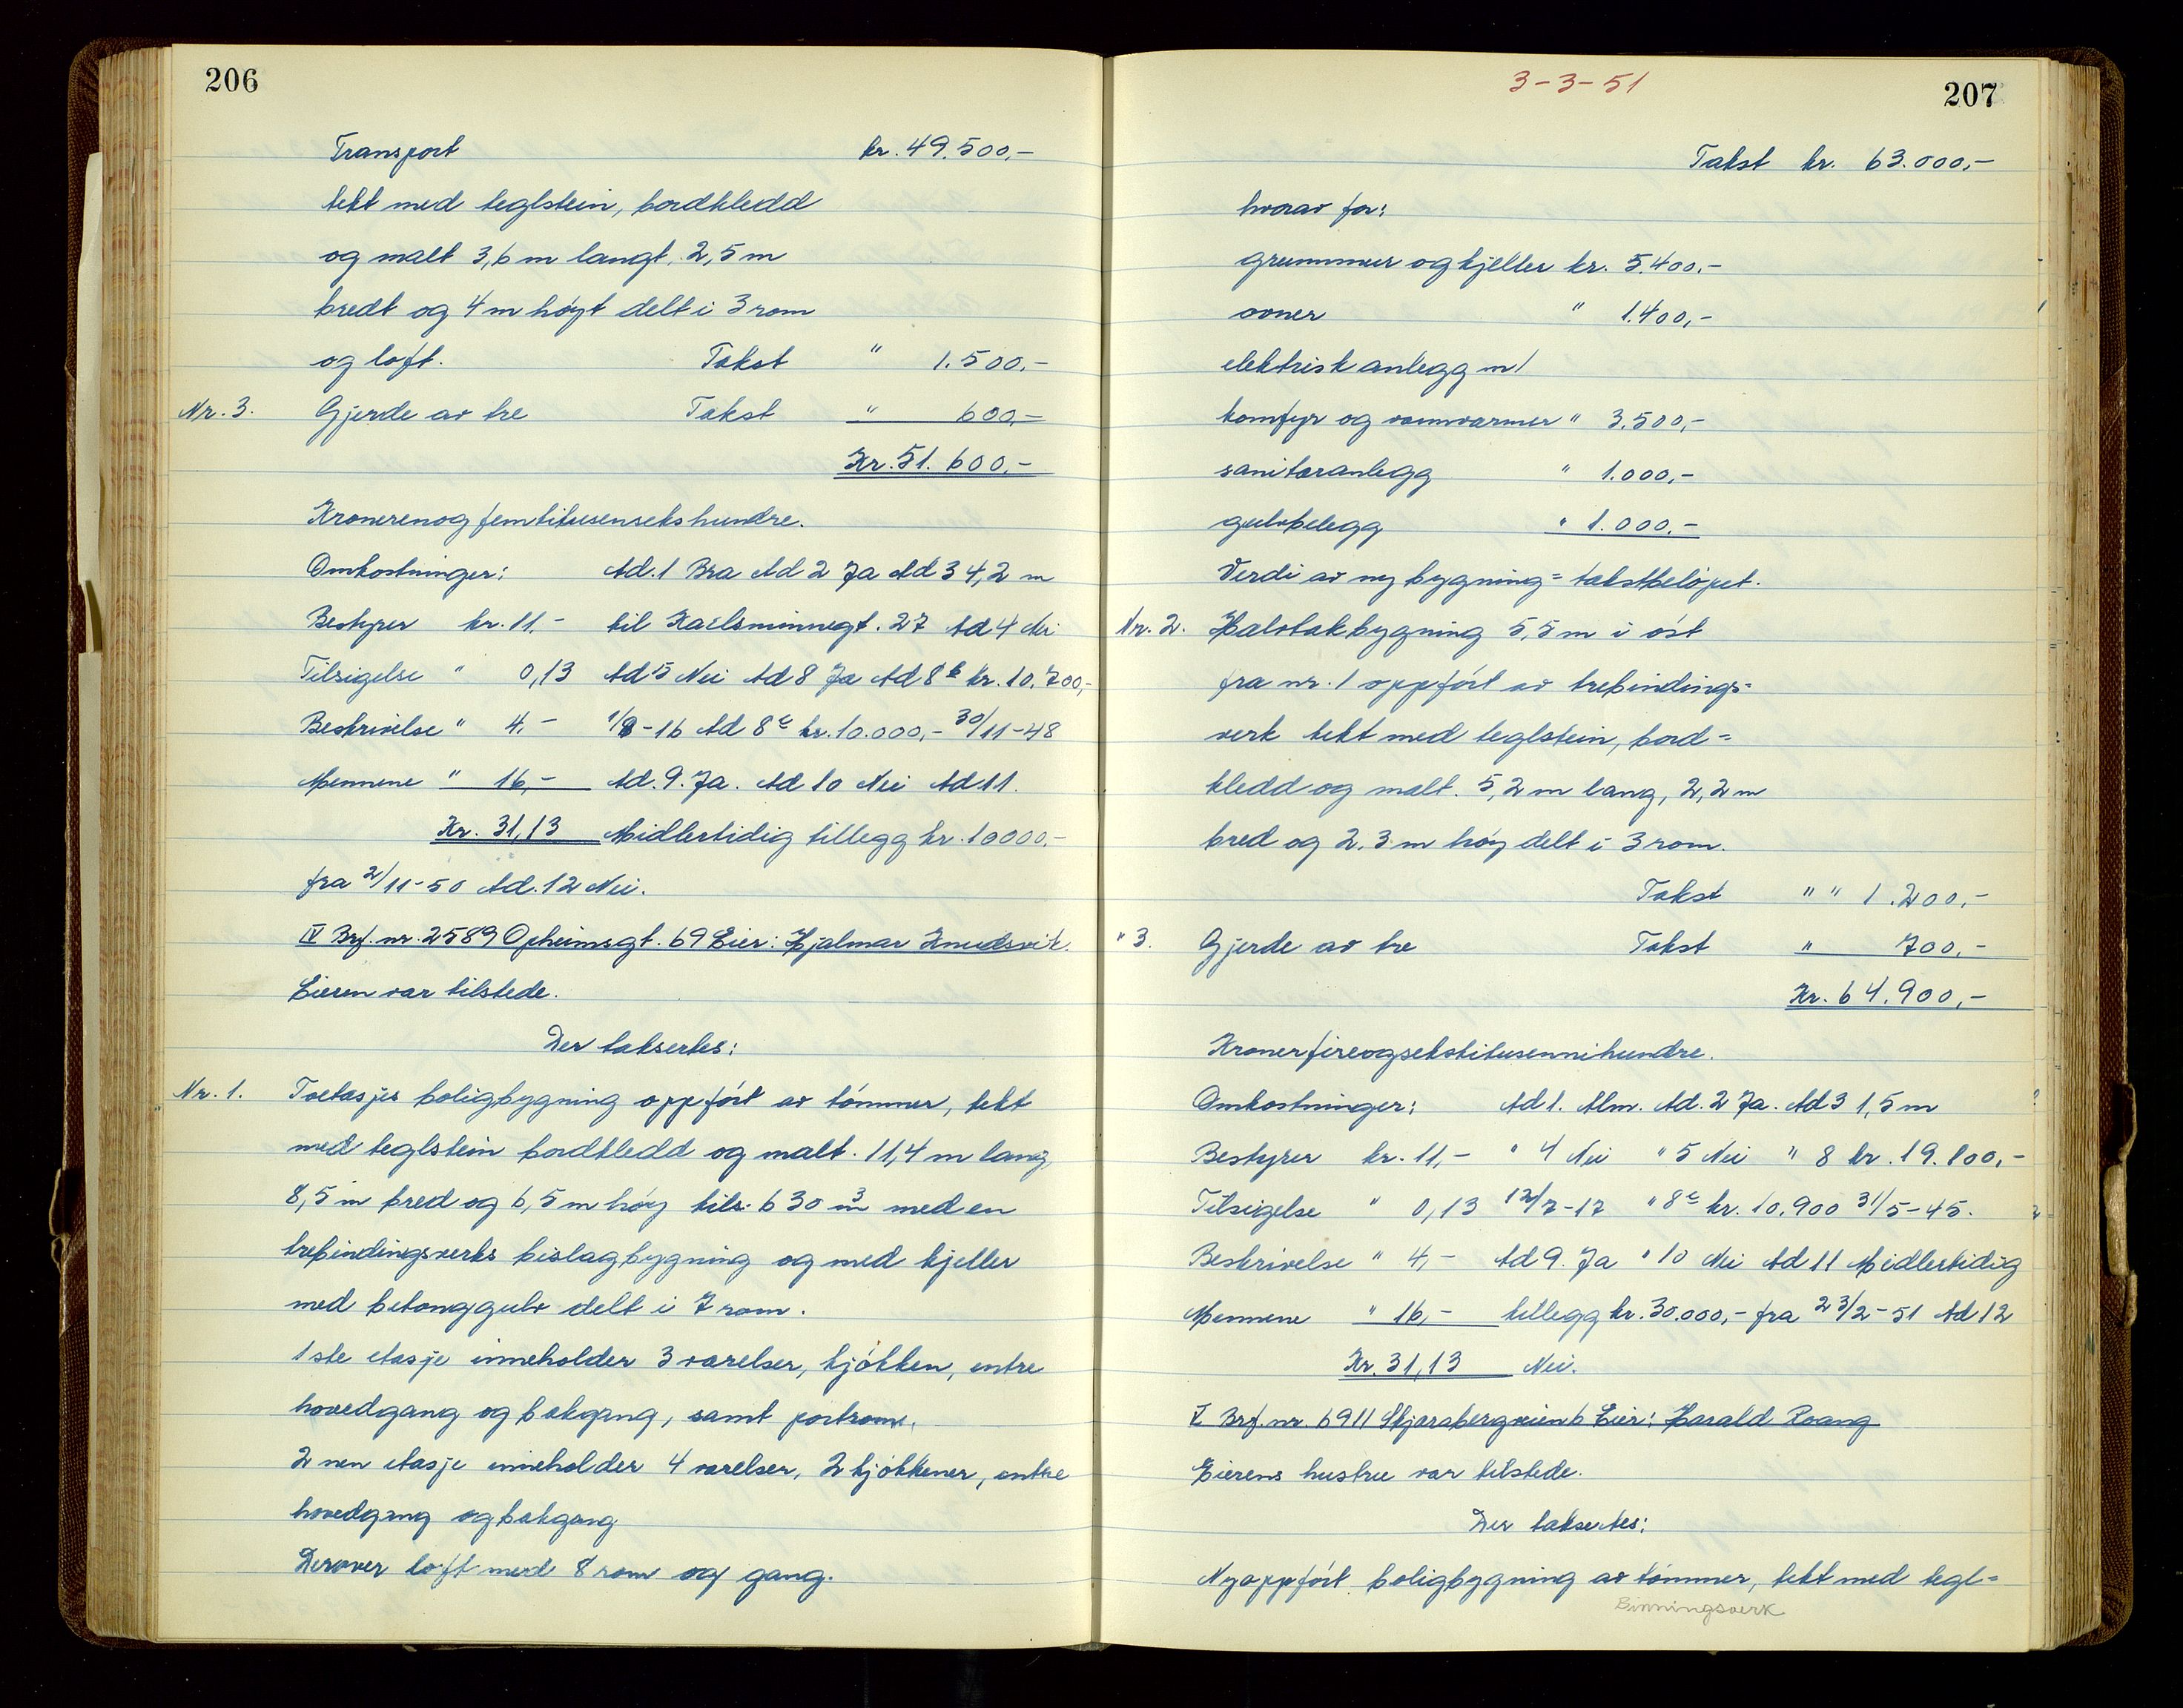 206
Transport kr. 49.500,-
tekt med teglstein, bordkledd
og malt 3,6 m langt, 2,5 m
bredt og 4 m høyt delt i 3 rom
og loft. Takst " 1.500.-
Nr. 3. Gjerde av tre Takst " 600,-
Kr. 51.600,-
Kronerenogfemtitusensekshundre.
Omkostninger: Ad. 1 Bra Ad 2 Ja Ad 3 4,2 m
Bestyrer kr. 11,- til Karlsminnegt. 27 Ad 4 Nei
Tilsigelse " 0,13 Ad 5 Nei Ad 8 Ja Ad 8 b kr. 10.700,-
Beskrivelse " 4,- 1/8-16 Ad 8 c kr. 10.000,- 30/11-48
Mennene " 16,- Ad. 9. Ja. Ad 10 Nei Ad 11.
Kr. 31,13 Midlertidig tillegg kr. 10000.-
fra 2/11-50 Ad. 12 Nei.
IV Brf. nr. 2589 Opheimsgt. 69 Eier: Hjalmar Knudsvik.
Eieren var tilstede.
Der taksertes:
Nr. 1. Toetasjes boligbygning oppført av tømmer, tekt
med teglstein bordkledd og malt. 11,4 m lang,
8,5 m bred og 6,5 m høy tils. 630 m3 med en
trebindingsverks bislagbygning og med kjeller
med betonggulv delt i 7 rom.
1 ste etasje inneholder 3 værelser, kjøkken, entre
hovedgang og bakgang, samt portrom.
2 nen etasje inneholder 4 værelser, 2 kjøkkener, entre
hovedgang og bakgang
Derover loft med 8 rom og gang.
3-3-51
207
Takst kr. 63.000,-
hvorav for:
grunnmur og kjeller kr. 5.400.-
ovner " 1.400,-
elektrisk anlegg m/
komfyr og vannvarmer " 3.500,-
sanitæranlegg " 1.000,-
gulvbelegg " 1.000.-
Verdi av ny bygning = takstbeløpet.
Nr. 2. Halvtakbygning 5,5 m i øst
fra nr. 1 oppført av trebindings=
verk tekt med teglstein, bord=
kledd og malt. 5,2 m lang, 2,2 m
bred og 2.3 m høy delt i 3 rom.
Takst " " 1.200,-
" 3. Gjerde av tre Takst " 700,-
Kr. 64.900,-
Kronerfireogsekstitusennihundre.
Omkostninger: Ad 1. Alm. Ad. 2 Ja. Ad 3 1,5 m
Bestyrer kr. 11,- " 4 Nei " 5 Nei " 8 kr. 19.800,-
Tilsigelse " 0,13 12/7-17 " 8 c kr. 10.900 31/5-45.
Beskrivelse " 4,- Ad 9. Ja " 10 Nei Ad 11 Midlertidig
Mennene " 16,- tillegg kr. 30.000,- fra 23/2-51 Ad 12
Kr. 31,13 Nei.
V Brf. nr. 6911 Skjærabergveien 6 Eier: Harald Roang
Eierens hustru var tilstede.
Der taksertes:
Nyoppført boligbygning av tømmer, tekt med tegl=
Binningsverk